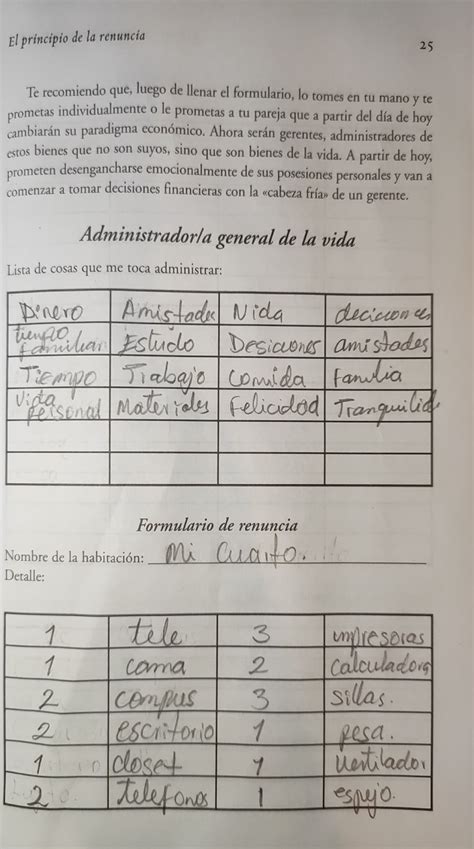 El principio de la renuncia 25
Te recomiendo que, luego de llenar el formulario, lo tomes en tu mano y te
prometas individualmente o le prometas a tu pareja que a partir del día de hoy
cambiarán su paradigma económico. Ahora serán gerentes, administradores de
estos bienes que no son suyos, sino que son bienes de la vida. A partir de hoy,
prometen desengancharse emocionalmente de sus posesiones personales y van a
comenzar a tomar decisiones financieras con la «cabeza fría» de un gerente.
Administrador/a general de la vida
Lista de cosas que me toca administrar:
Dinero Amistades Vida deciciones
tiempo familiar Estudio Desiciones amistades
Tiempo Trabajo comida familia
Vida personal Materiales felicidad Tranquilid
Formulario de renuncia
Nombre de la habitación: Mi cuarto.
Detalle:
1 tele 3 impresoras
1 cama 2 calculadora
2 compus 3 sillas.
2 escritorio 1 pesa.
1 closet 1 ventilador
2 telefonos 1 espejo.